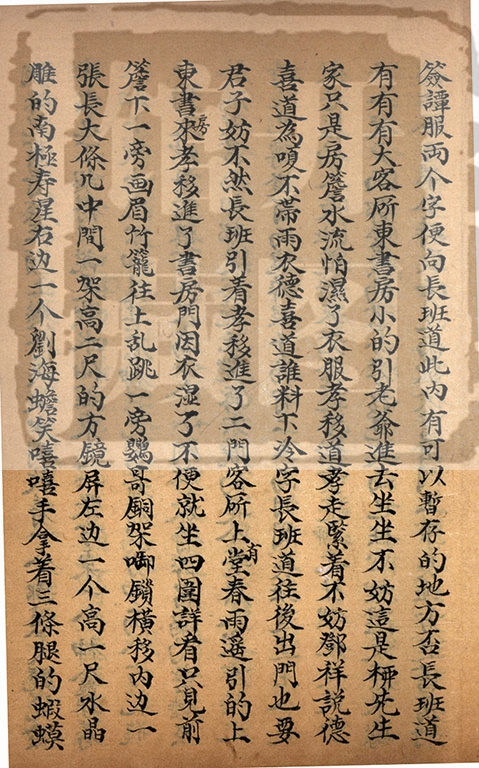 簽譚服兩个字便向長班道此內有可以暫存的地方否長班道
有有有大客所東書房小的引老爺進去坐坐不妨這是柳先生
家只是房簷水流怕濕了衣服孝移道孝走緊着不妨鄧祥説德
喜道為嗄不帶雨衣德喜道誰料下冷字長班道往後出門也要
君子妨不然長班引着孝移進了二門客所上堂有春雨遥引的上
東書房來孝移進了書房門因衣湿了不便就坐四圍詳看只見前
簷下一旁画眉竹籠往上乱跳一旁鸚哥銅架啣鎖橫移內边一
張長大條几中間一架高二尺的方鏡屏左边一个高一尺水晶
雕的南極寿星右边一个劉海蟾笑嘻嘻手拿着三條腿的蝦蟆